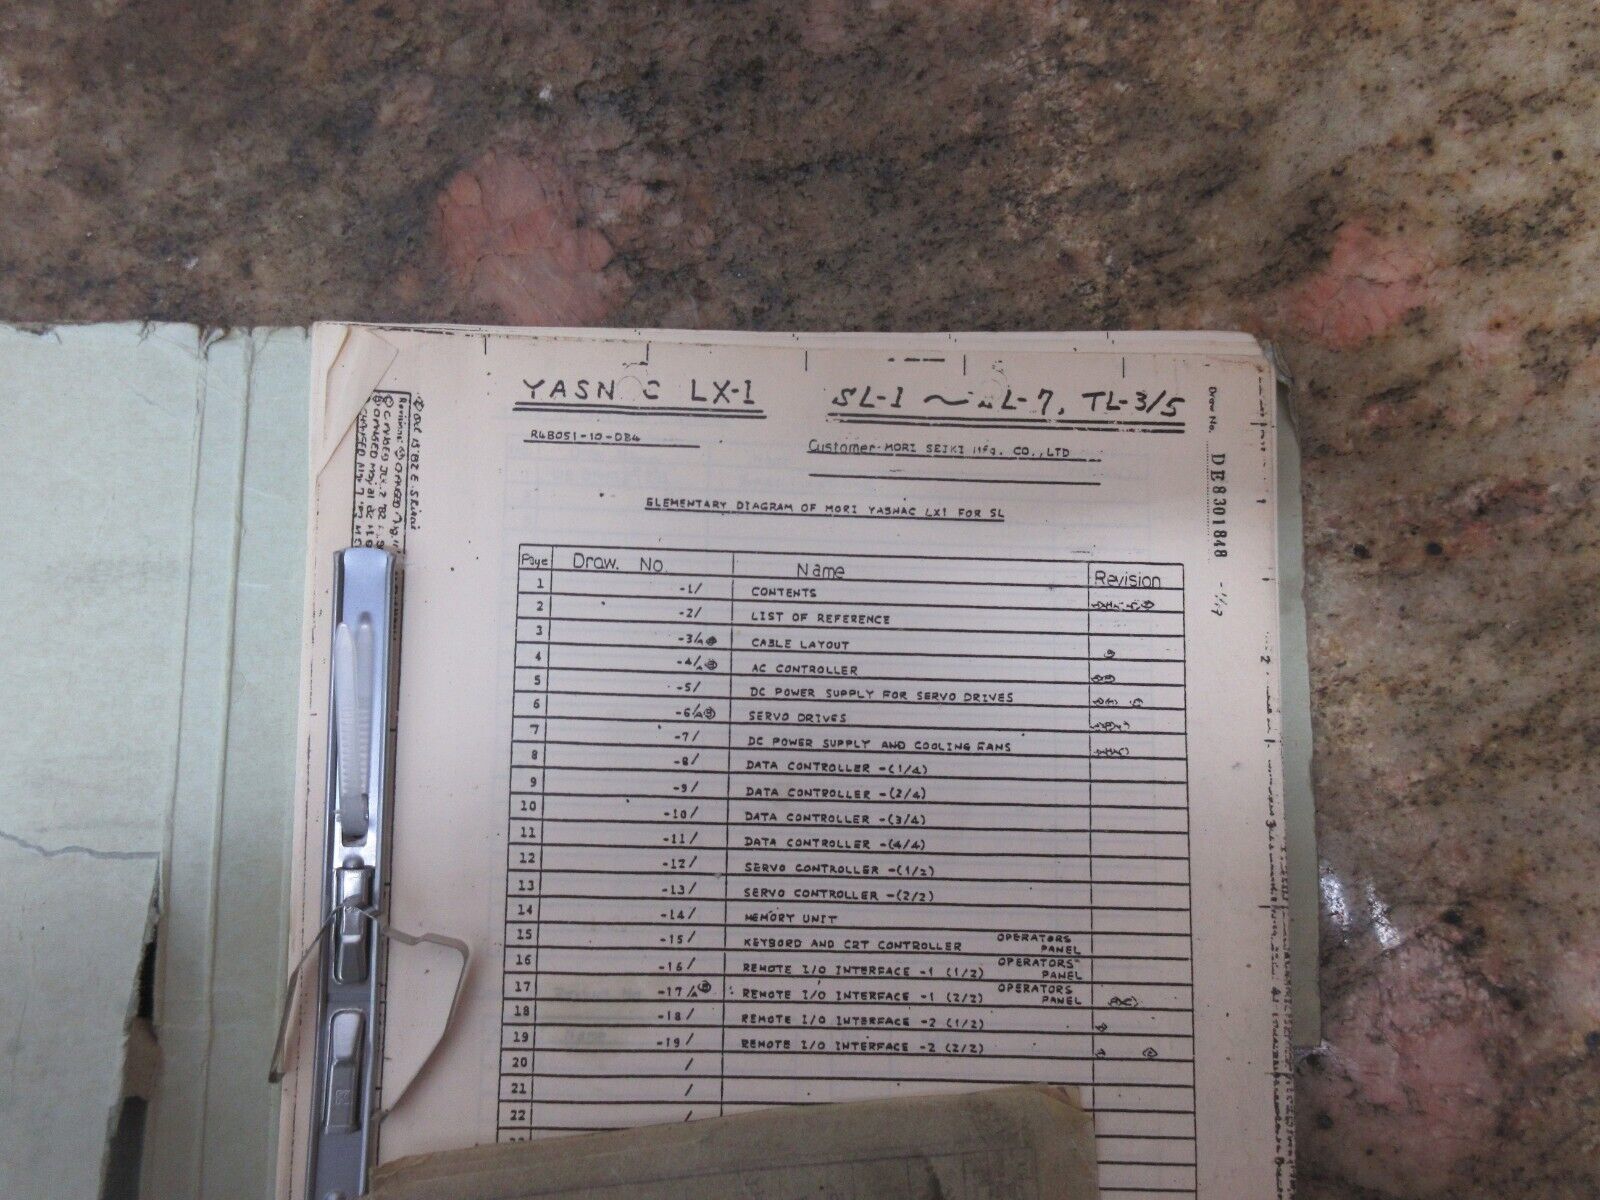 YASN C LX-1 SL-1 ~ L-7, TL-3/5
R48051-10-DB4 Customer- MORI SEIKI Mfg. CO., LTD
ELEMENTARY DIAGRAM OF MORI YASNAC LX1 FOR SL
Page Draw. No. Name Revision
1 -1/ CONTENTS
2 -2/ LIST OF REFERENCE
3 -3/A CABLE LAYOUT
4 -4/A AC CONTROLLER
5 -5/ DC POWER SUPPLY FOR SERVO DRIVES
6 -6/A SERVO DRIVES
7 -7/ DC POWER SUPPLY AND COOLING FANS
8 -8/ DATA CONTROLLER -(1/4)
9 -9/ DATA CONTROLLER -(2/4)
10 -10/ DATA CONTROLLER -(3/4)
11 -11/ DATA CONTROLLER -(4/4)
12 -12/ SERVO CONTROLLER -(1/2)
13 -13/ SERVO CONTROLLER -(2/2)
14 -14/ MEMORY UNIT
15 -15/ KEYBORD AND CRT CONTROLLER OPERATORS PANEL
16 -16/ REMOTE I/O INTERFACE -1 (1/2) OPERATORS PANEL
17 -17/A REMOTE I/O INTERFACE -1 (2/2) OPERATORS PANEL
18 -18/ REMOTE I/O INTERFACE -2 (1/2)
19 -19/ REMOTE I/O INTERFACE -2 (2/2)
20 /
21 /
22 /
Draw No. DE8301848